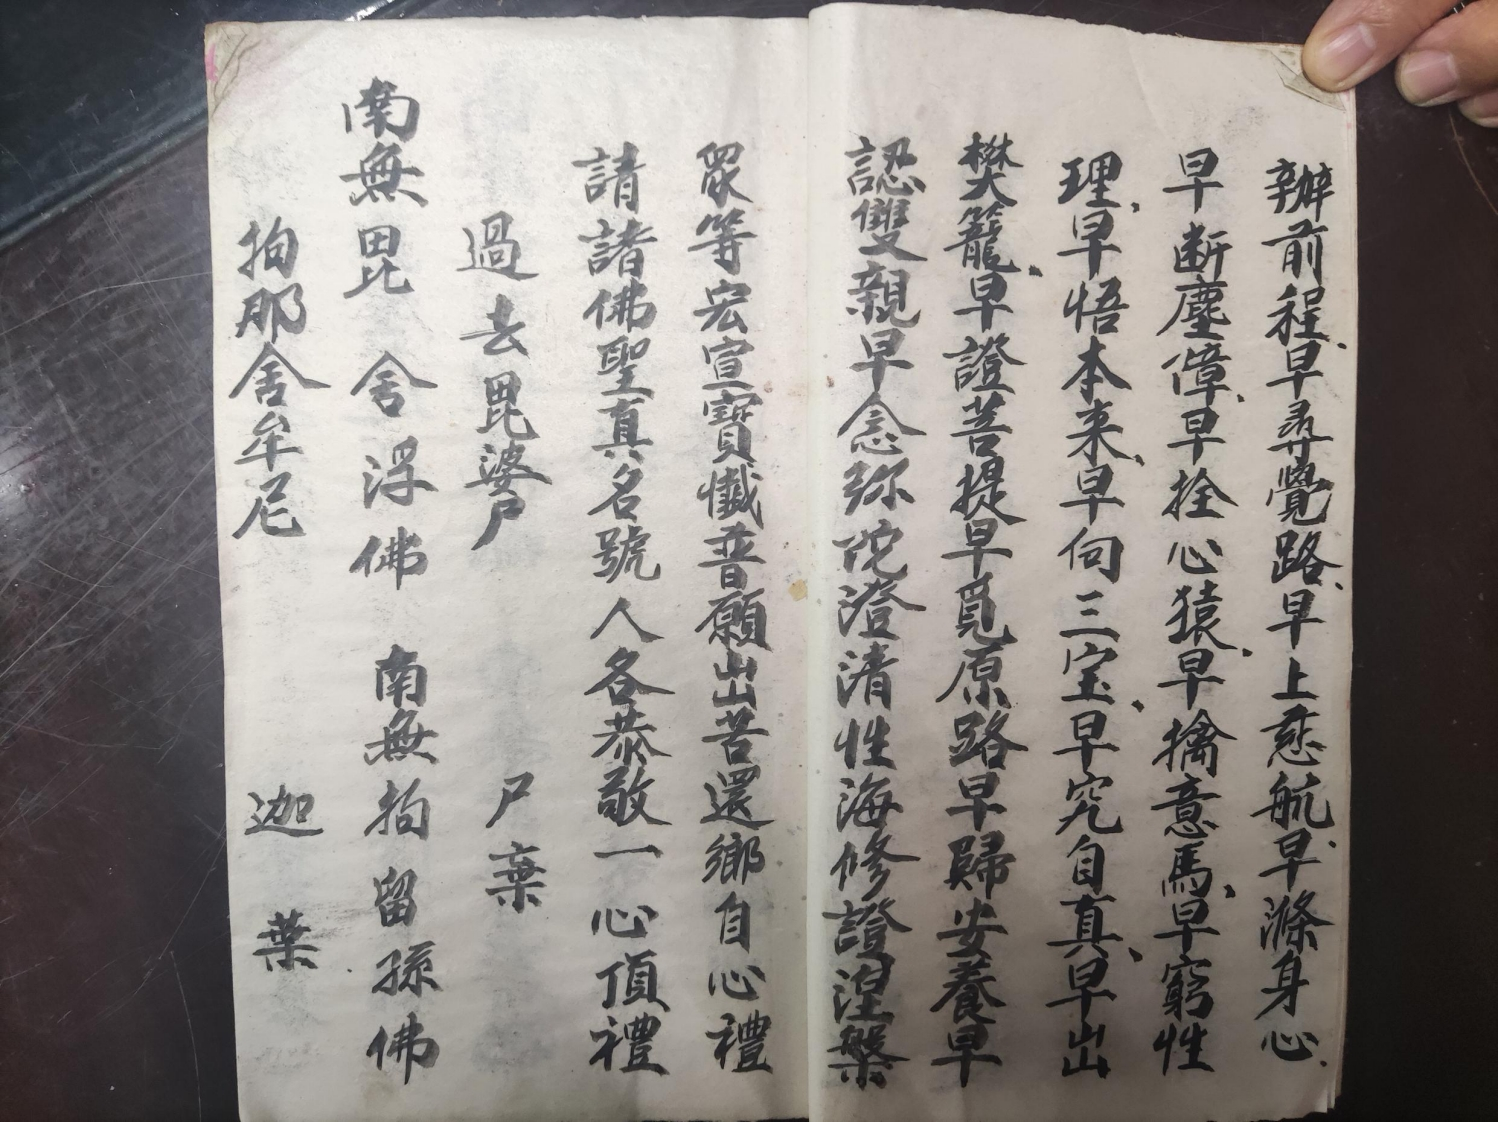 辦前程、早尋覺路、早上慈航、早滌身心、
早断塵僮、早拴心猿、早擒意馬、早窮性
理、早悟本来、早向三宝、早究自真、早出
樊籠、早證菩提早覓原路早歸安養早
認雙親早念弥陀澄清性海修證涅槃
眾等宏宣寶懺普願出苦還鄉自心禮
請諸佛聖真名號人各恭敬一心頂禮
過去毘婆尸 尸棄
南無毘舍浮佛 南無拘留孫佛
拘那舍牟尼 迦葉